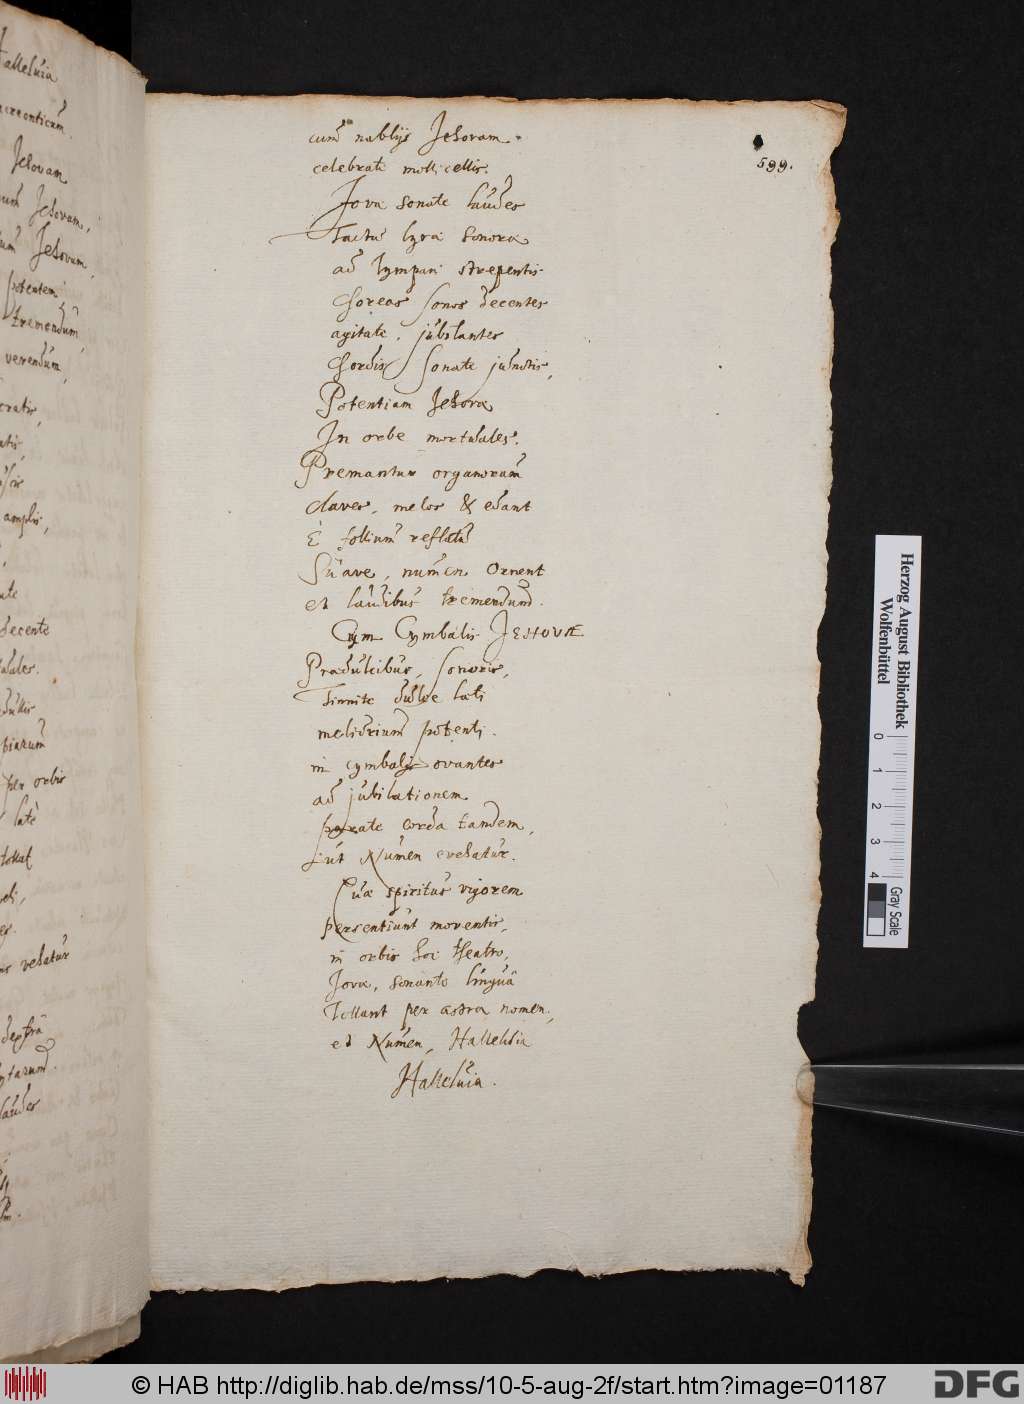 Halleluia
Jehovam
Jehovam,
Jehovam,
potentem
tremendum
verendum,
amplis,
decente
per orbis
late
vehatur
laudes
599.
cum nablijs Jehovam.
celebrate mollicellis.
Jova sonate laudes
Tactu lyra sonora
ad tympani strepentis
Choreas sonos decentes
agitate, jubilantes
Chordis sonate junctis,
Potentiam Jehova
In orbe mortales.
Premantur organorum
claves, melos & edant
E follium reflatu
Suave, numen ornent
et laudibus tremendum.
Cum Cymbalis JEHOVÆ
Prædulcibus, sonoris,
Tinnite dulce læti
melodrium potenti.
in cymbalis ovantes
ad jubilationem
parate corda tandem,
Ut Numen evehatur.
Quæ spiritus vigorem
persentiunt moventis,
in orbis hoc theatro,
Jova, sonante linguâ
Tollant per astra nomen,
et Numen, Halleluia
Halleluia.
Herzog August Bibliothek
Wolfenbüttel
0 1 2 3 4
Gray Scale
© HAB http://diglib.hab.de/mss/10-5-aug-2f/start.htm?image=01187
DFG